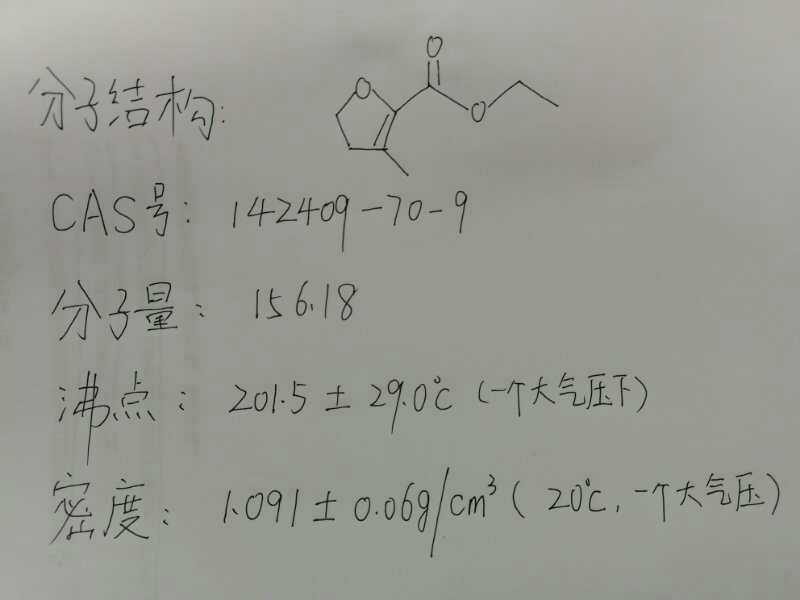 分子结构:
O
O
O
CAS号: 142409-70-9
分子量: 156.18
沸点: 201.5 ± 29.0℃ (一个大气压下)
密度: 1.091 ± 0.06g/cm³ ( 20℃, 一个大气压)